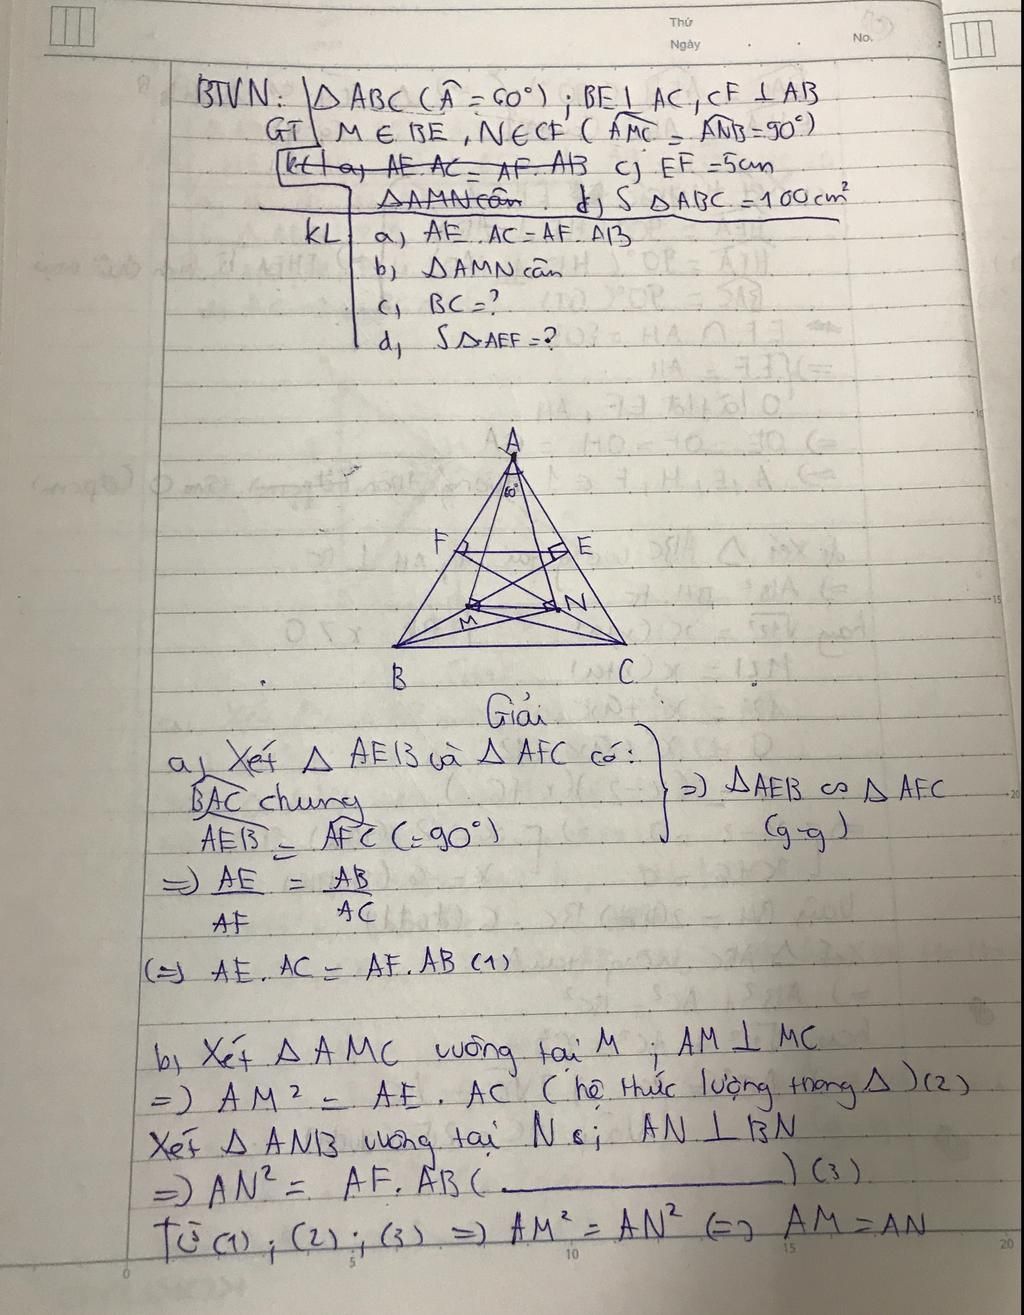 Thứ
Ngày
No.
BTVN: Δ ABC (Â = 60°) ; BE ⊥ AC, CF ⊥ AB
GT M ∈ BE, N ∈ CF ( AMC = ANB = 90°)
KL a, AE. AC = AF. AB c, EF = 5cm
Δ AMN cân d, S Δ ABC = 100cm²
KL a, AE . AC = AF. AB
b, Δ AMN cân
c, BC = ?
d, S Δ AEF = ?
A
60°
F E
M N
B C
Giải
a, Xét Δ AEB và Δ AFC có:
BAC chung
=) Δ AEB ∽ Δ AFC
AEB = AFC (= 90°)
(g-g)
=) AE/AF = AB/AC
(=) AE. AC = AF. AB (1)
b, Xét Δ AMC vuông tại M ; AM ⊥ MC
=) AM² = AE. AC ( hệ thức lượng trong Δ ) (2)
Xét Δ ANB vuông tại N ; AN ⊥ BN
=) AN² = AF. AB ( ) (3)
Từ (1) ; (2) ; (3) =) AM² = AN² (=) AM = AN
0 5 10 15 20
10
15
20